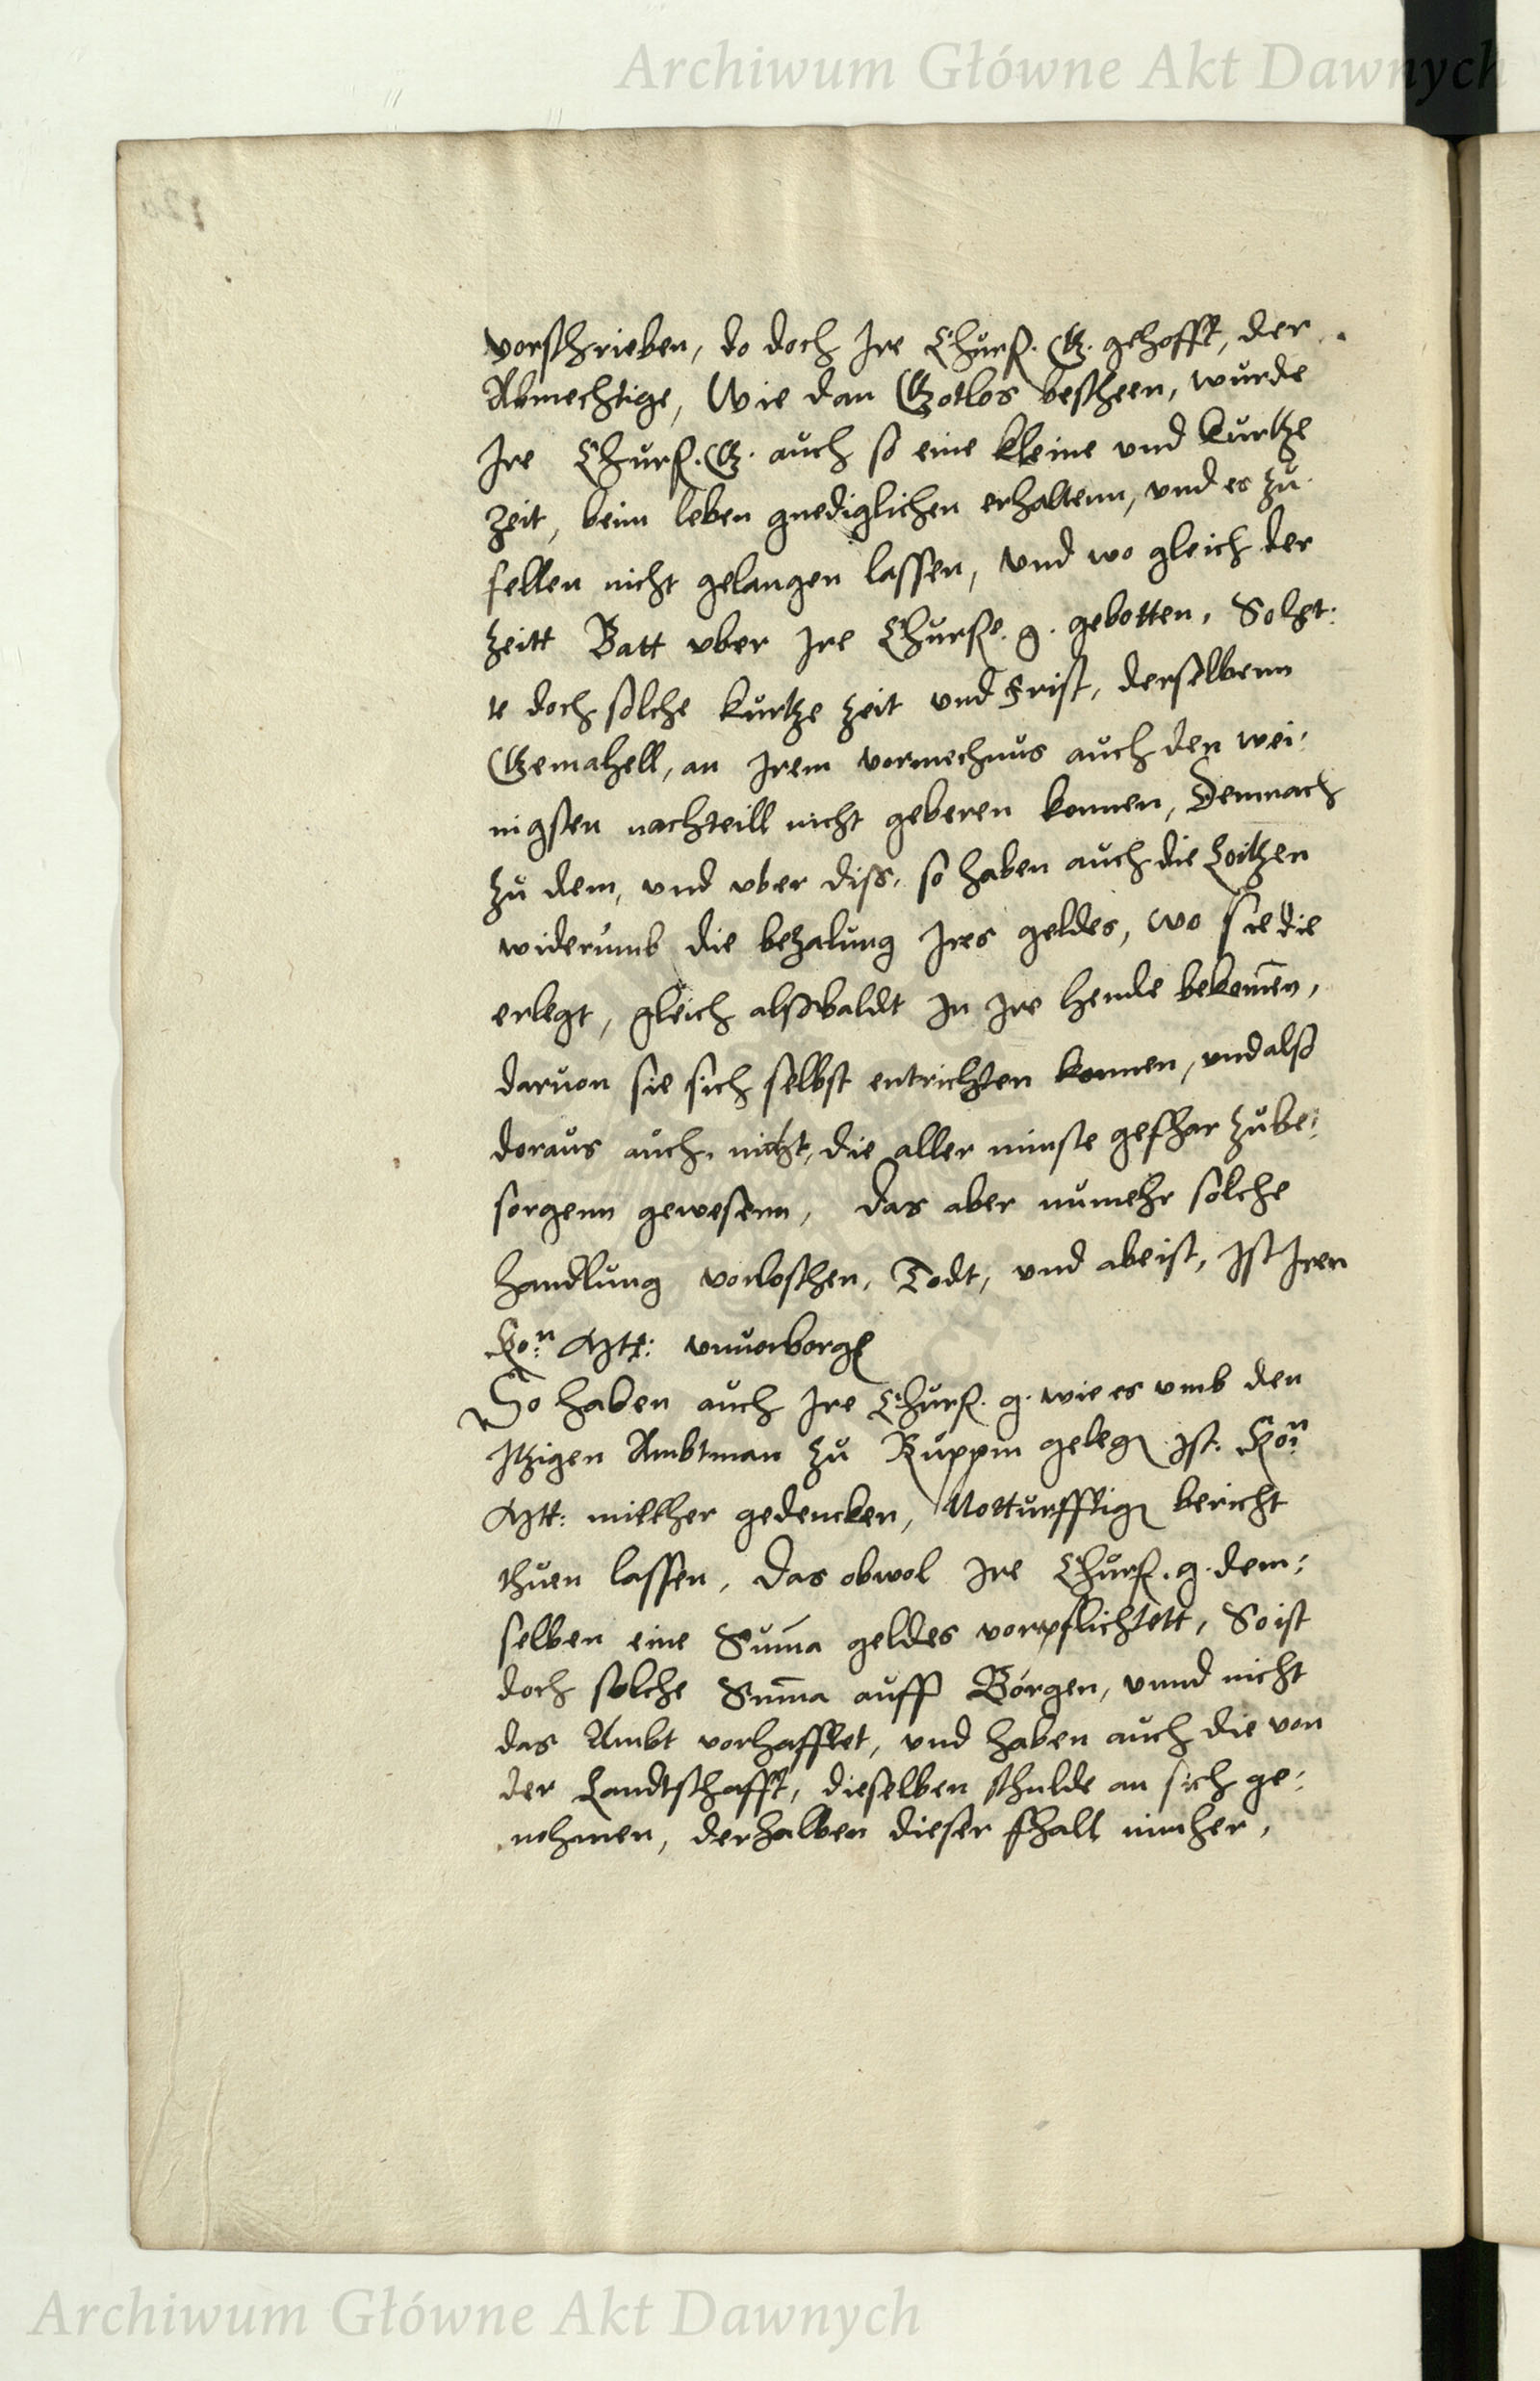 Archiwum Główne Akt Dawnych
vorschrieben, do doch Ire Churf. G. gehofft, der
Almechtige, Wie dan Gotlob bescheen, wurde
Ire Churf. G. auch so eine kleine und kurtze
zeit, beim leben gnediglichen erhaltenn, und es zu
fellen nicht gelangen lassen, Und wo gleich der
zeitt Gott uber Ire Churf. g. gebotten, Solt
te doch solche kurtze zeit und Frist, derselbenn
Gemahell, an Irem vormechnus auch den wei:
nigsten nachteill nicht geberen konnen, Demnach
zu dem, und uber diss, so haben auch die Loitzen
widerumb die bezalung Ires geldes, wo sie die
erlegt, gleich alssbaldt In Ire hende bekomen,
daruon sie sich selbst entrichten konnen, und alss
doraus auch nicht, die aller minste gefhar zube:
sorgenn gewesenn, das aber numehr solche
handlung vorloschen, Todt, und abe ist, Ist Iren
Kon: Mtt: unuorborgen
So haben auch Ire Churf. g. wie es umb den
Itzigen Ambtman zu Ruppin gelegen ist. Kon:
Mtt: mitther gedencken, Notturfftigen bericht
thuen lassen, das obwol Ire Churf. g. dem:
selben eine Suma geldes vorpflichtett, So ist
doch solche Suma auff Börgen, unnd nicht
das Ambt vorhafftet, und haben auch die von
der Landtschafft, dieselben schulde an sich ge:
nohmen, derhalben dieser fhall
Archiwum Główne Akt Dawnych